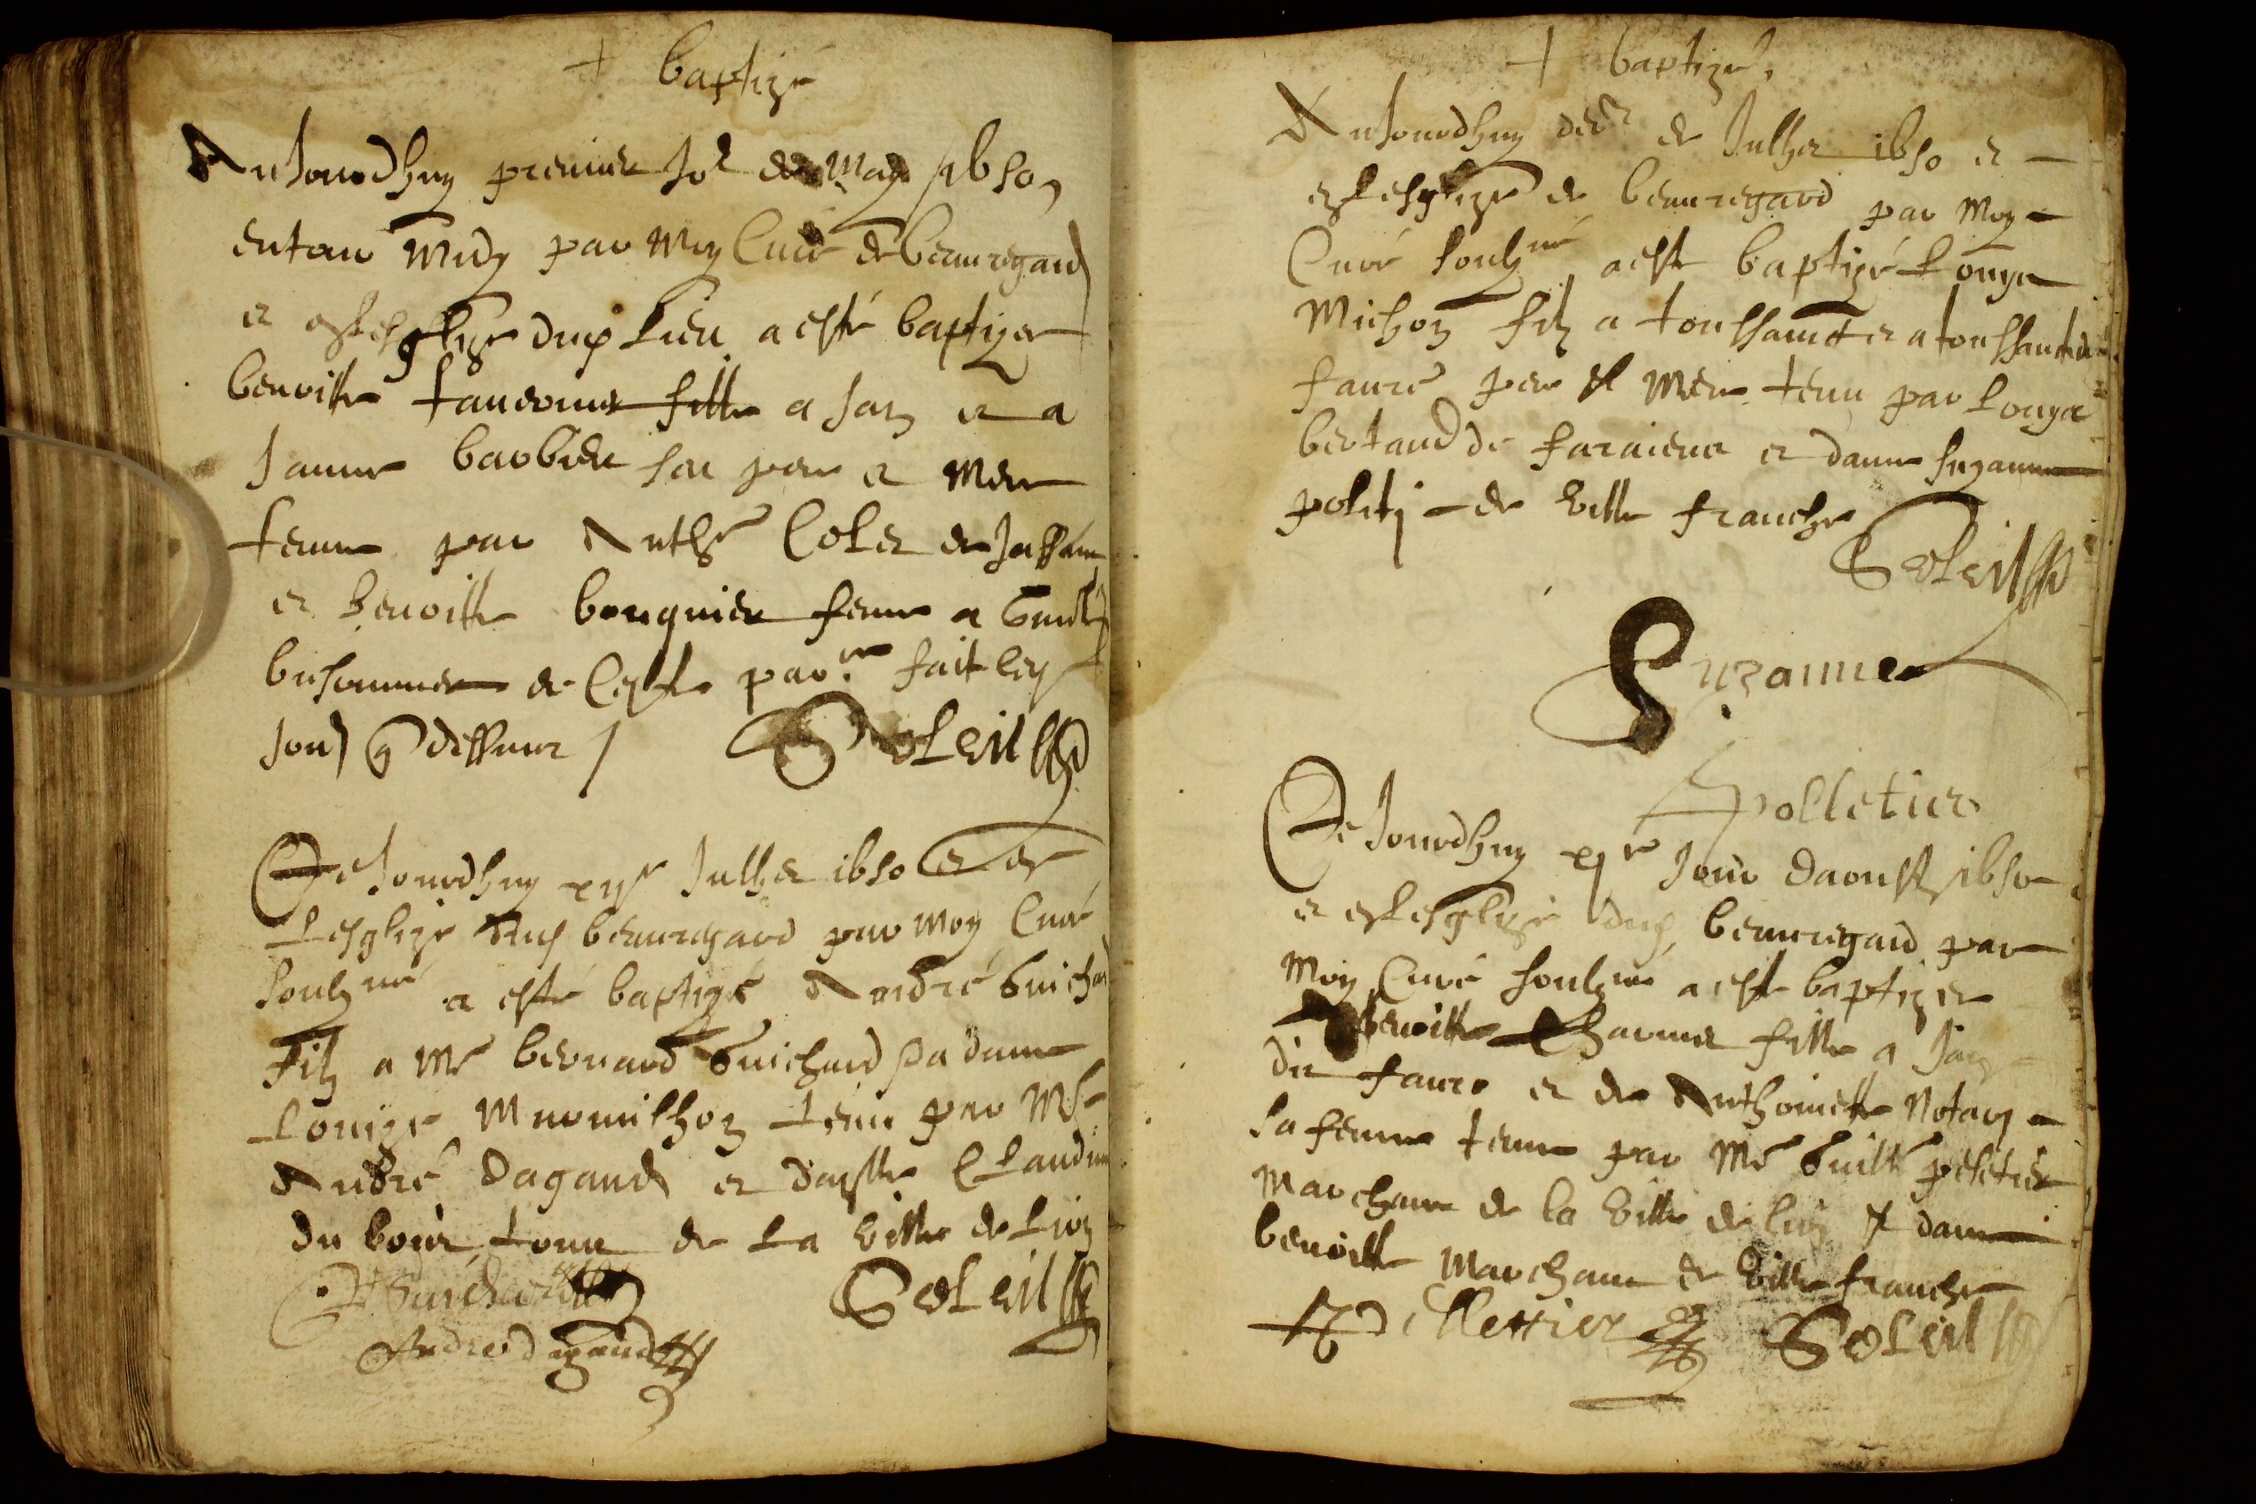 + baptizé
Aujourdhuy premier Jor de May 1650
entour midy par moy Curé de beauregard
et esglize dud lieu a esté baptizer
benoiste fille a Jan et a
Janne barbier sa pere et mere
tenue par Anthe Colet de Jassan
et benoiste bouquier feme a
de Ceste parre fait les
Jour q dessus / Soleil
Ce Jourdhuy xije Julhet 1650 et en
Lesglize dud beauregard par moy Curé
soubzné a esté baptizé André Guichard
filz a Me bernard Guichard a dame
Louyze tenu par Mr
André Dagaud et daiste Claudine
du bour de La ville de Lion
Guichard Soleil
Andre Dagaud
+ baptizé
Aujourdhuy de Julhet 1650 et
esglize de beauregard par moy
Curé soubzné a esté baptizé Louys
Michon filz a toussainct et a toussaincte
faure pere et mere tenu par Louys
bertaud de faraiene et dame suzanne
politj de ville franche
Soleil
Suzanne
polletier
Ce Jourdhuy xje Jour daoust 1650
et esglize dud beauregard par
moy Curé soubzné a esté baptizer
benoiste Charmet fille a Jan
dit faure et de Anthoinette Notary
sa feme tenue par Me Guille peletier
marchant de la ville de lion et dame
benoiste marchant de ville franche
Pellettier Soleil